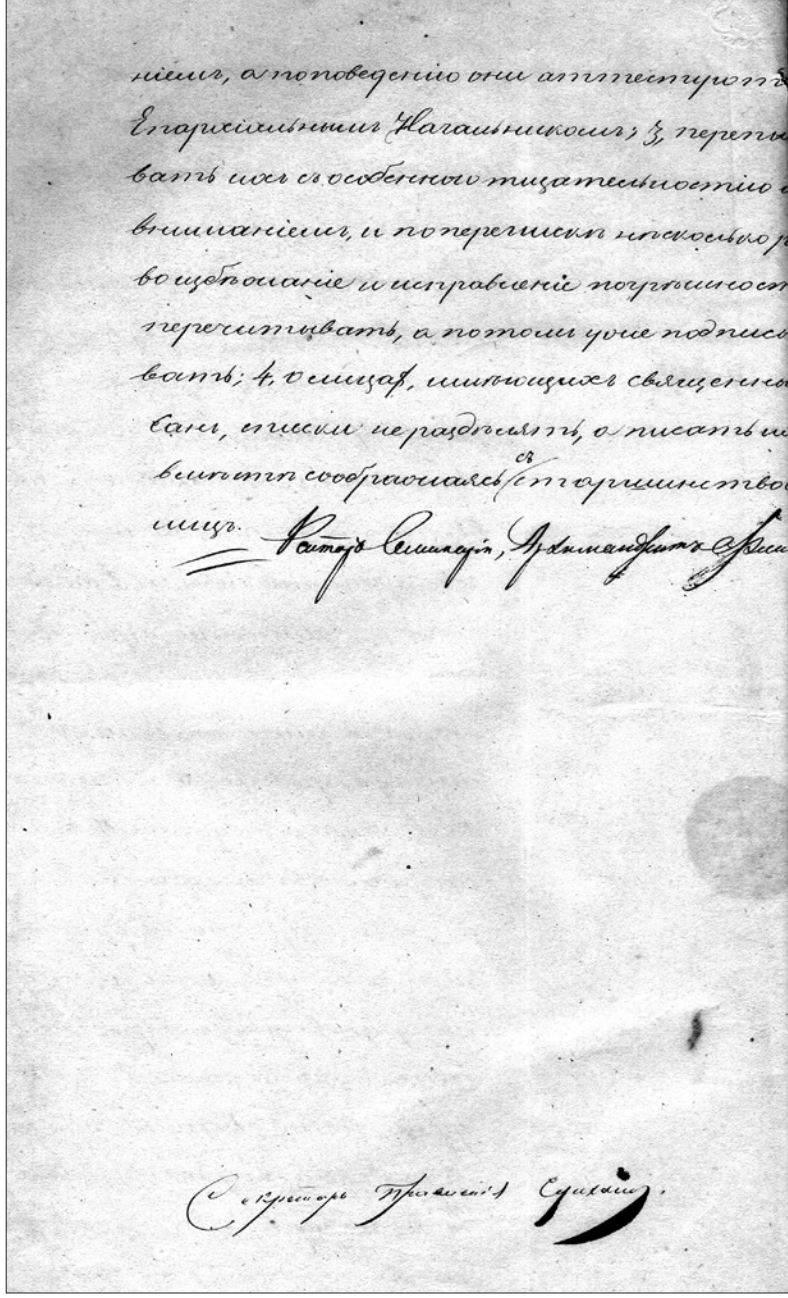 ніемъ, а по поведенію они аттестуютъ
Епархіальнымъ Начальникомъ; 3, перепи
вать ихъ съ особенною тщательностію и
вниманіемъ, и по перепискѣ нѣсколько р
во избѣжаніе и исправленіе погрѣшност
перечитывать, а потомъ уже подписы
вать; 4, о лицахъ, имѣющихъ священны
санъ, списки не раздѣлять, а писать их
вмѣстѣ соображаясь съ старшинство
лицъ.
Ректоръ Семинаріи, Архимандритъ
Секретарь Правленія